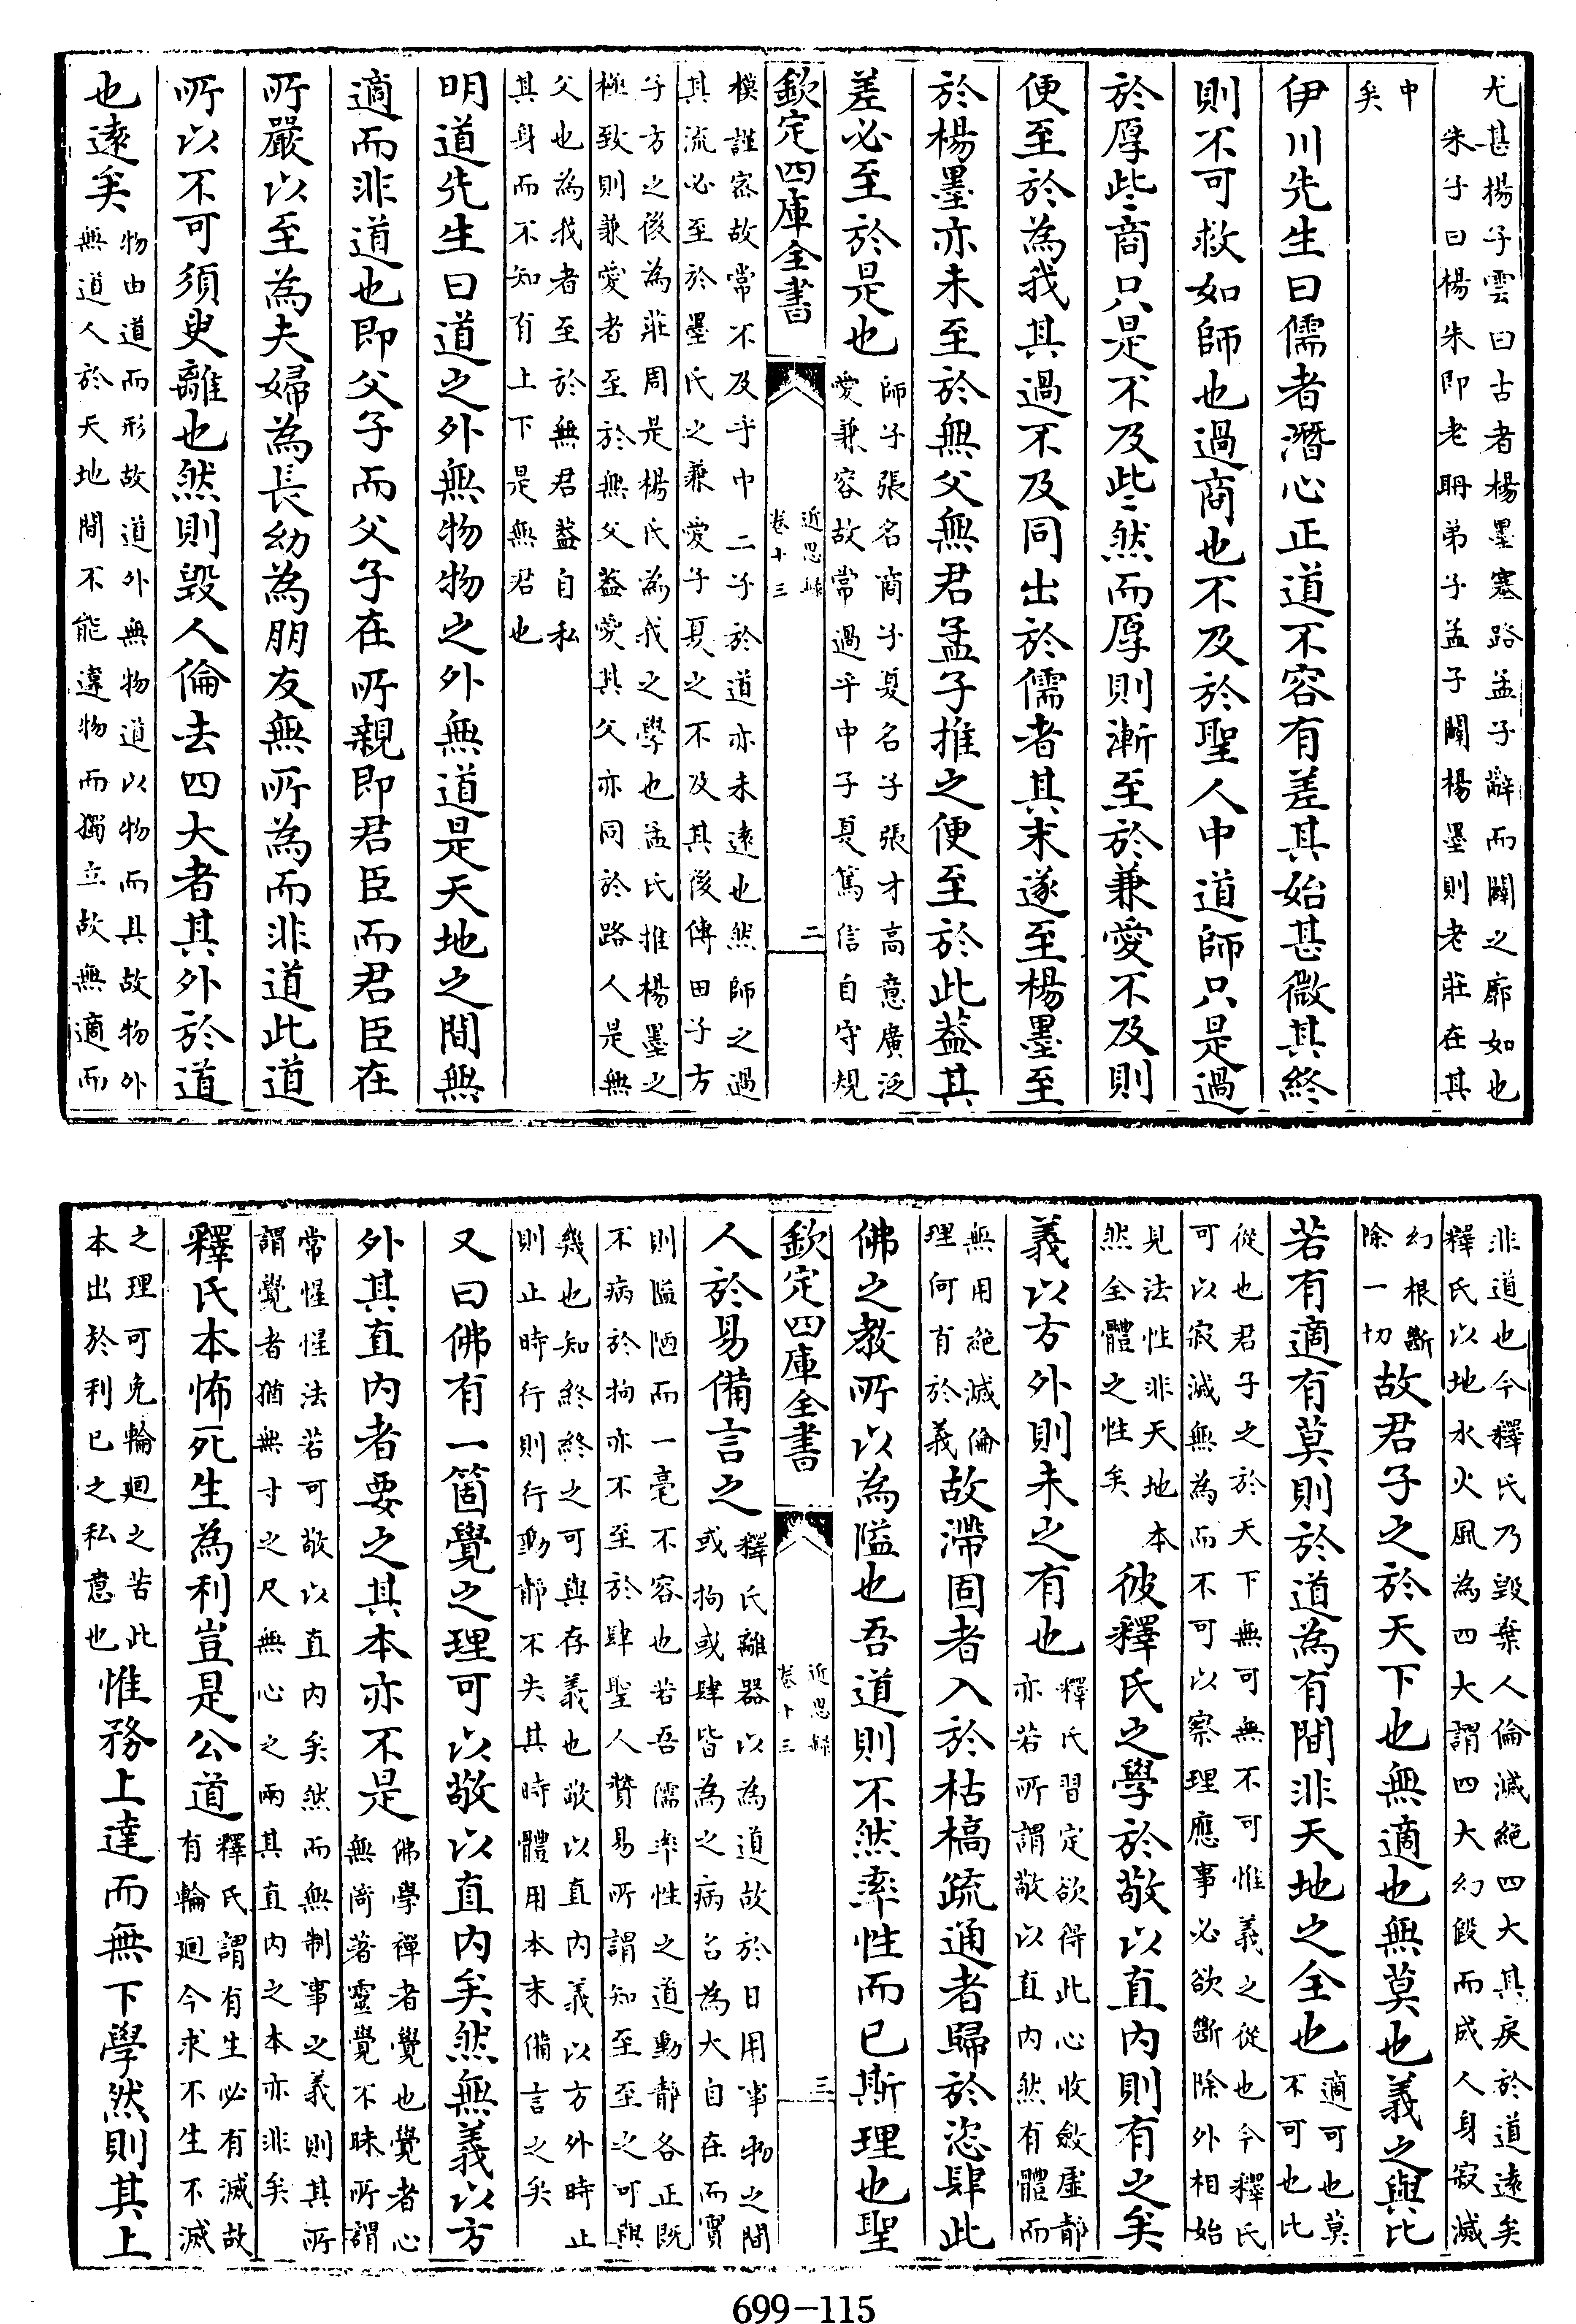 尤甚揚子雲曰古者楊墨塞路孟子辭而闢之廓如也
朱子曰楊朱即老聃弟子孟子闢楊墨則老莊在其
中
矣
伊川先生曰儒者潛心正道不容有差其始甚微其終
則不可救如師也過商也不及於聖人中道師只是過
於厚些商只是不及些然而厚則漸至於兼愛不及則
便至於為我其過不及同出於儒者其末遂至楊墨至
於楊墨亦未至於無父無君孟子推之便至於此蓋其
差必至於是也師子張名商子夏名子張才高意廣泛
愛兼容故常過乎中子夏篤信自守規
欽定四庫全書
近思錄
卷十三
二
模謹宻故常不及乎中二子於道亦未遠也然師之過
其流必至於墨氏之兼愛子夏之不及其後傳田子方
子方之後為莊周是楊氏為我之學也孟氏推楊墨之
極致則兼愛者至於無父蓋愛其父亦同於路人是無
父也為我者至於無君蓋自私
其身而不知有上下是無君也
明道先生曰道之外無物物之外無道是天地之間無
適而非道也即父子而父子在所親即君臣而君臣在
所嚴以至為夫婦為長幼為朋友無所為而非道此道
所以不可須臾離也然則毀人倫去四大者其外於道
也遠矣物由道而形故道外無物道以物而具故物外
無道人於天地間不能違物而獨立故無適而
非道也今釋氏乃毀棄人倫滅絶四大其戾於道遠矣
釋氏以地水火風為四大謂四大幻假而成人身寂滅
幻根斷
除一切故君子之於天下也無適也無莫也義之與比
若有適有莫則於道為有間非天地之全也適可也莫
不可也比
從也君子之於天下無可無不可惟義之從也今釋氏
可以寂滅無為而不可以察理應事必欲斷除外相始
見法性非天地本
然全體之性矣彼釋氏之學於敬以直內則有之矣
義以方外則未之有也釋氏習定欲得此心收斂虛靜
亦若所謂敬以直內然有體而
無用絶滅倫
理何有於義故滯固者入於枯槁疏通者歸於恣肆此
佛之教所以為隘也吾道則不然率性而已斯理也聖
欽定四庫全書
近思錄
卷十三
三
人於易備言之釋氏離器以為道故於日用事物之間
或拘或肆皆為之病名為大自在而實
則隘陋而一毫不容也若吾儒率性之道動靜各正既
不病於拘亦不至於肆聖人贊易所謂知至至之可與
幾也知終終之可與存義也敬以直內義以方外時止
則止時行則行動靜不失其時體用本末備言之矣
又曰佛有一箇覺之理可以敬以直內矣然無義以方
外其直內者要之其本亦不是佛學禪者覺也覺者心
無倚著靈覺不昧所謂
常惺惺法若可敬以直內矣然而無制事之義則其所
謂覺者猶無寸之尺無心之兩其直內之本亦非矣
釋氏本怖死生為利豈是公道釋氏謂有生必有滅故
有輪廻今求不生不滅
之理可免輪廻之苦此
本出於利已之私意也惟務上達而無下學然則其上
699-115